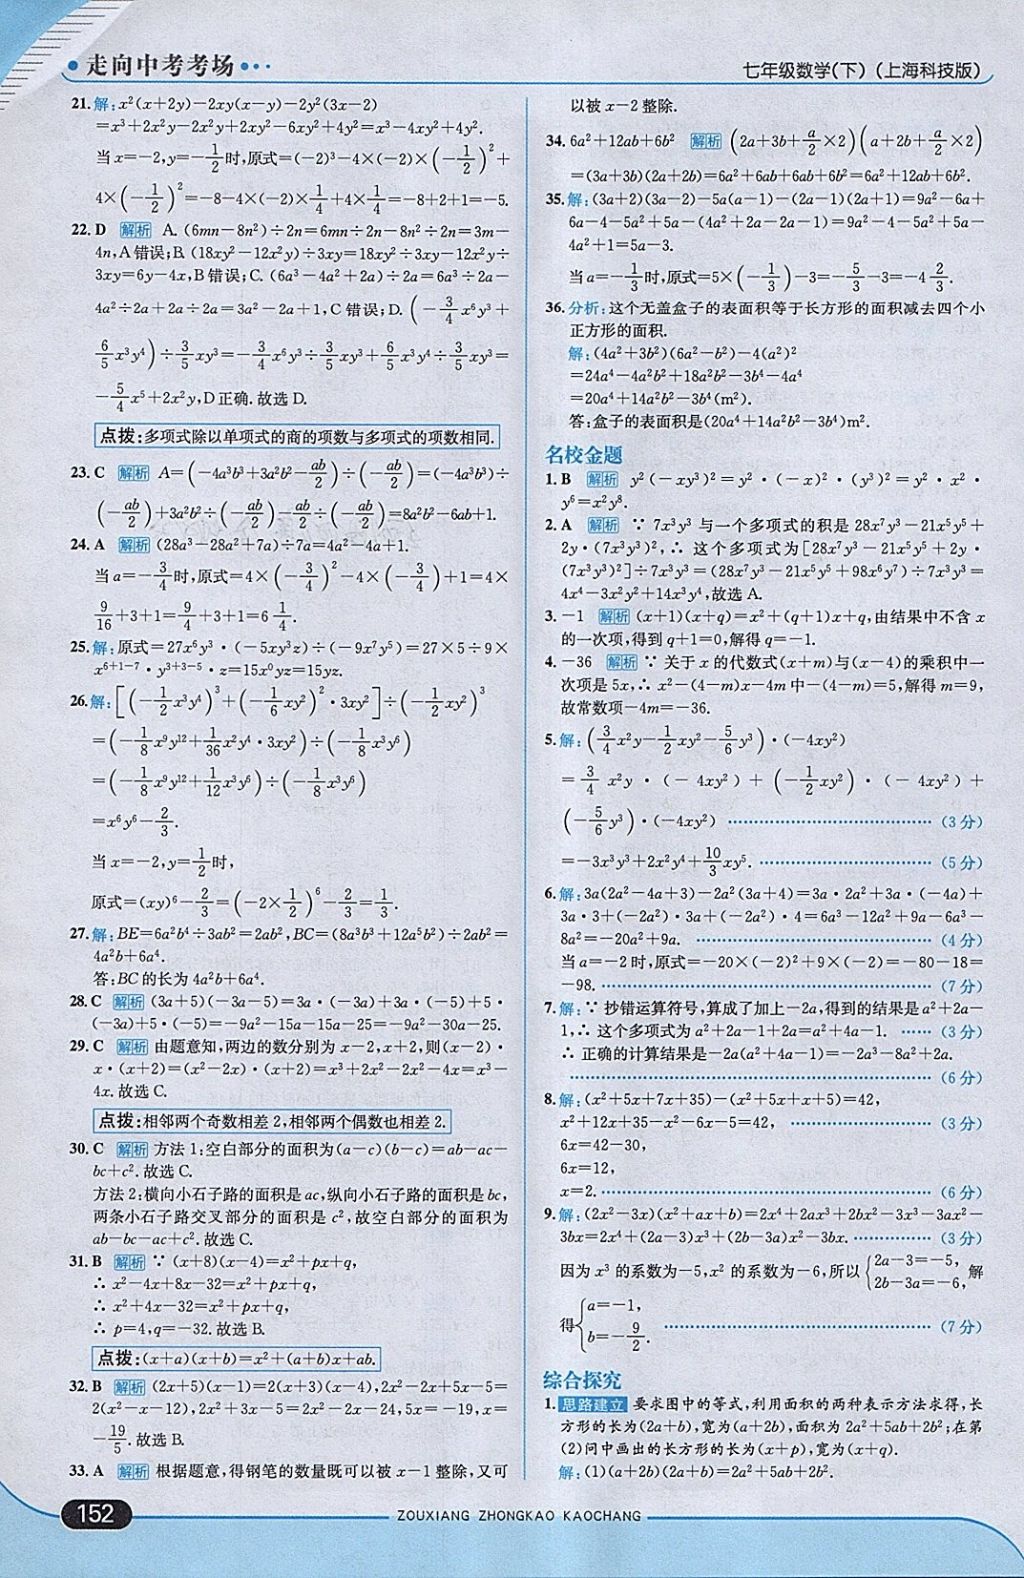 走向中考考场
七年级数学(下)(上海科技版)
21.解:x²(x+2y)-2xy(x-y)-2y²(3x-2)
=x³+2x²y-2x²y+2xy²-6xy²+4y²=x³-4xy²+4y².
当x=-2,y=-1/2时,原式=(-2)³-4×(-2)×(-1/2)²+
4×(-1/2)²=-8-4×(-2)×1/4+4×1/4=-8+2+1=-5.
22.D 解析 A.(6mn-8n²)÷2n=6mn÷2n-8n²÷2n=3m-
4n,A错误;B.(18xy²-12x²y)÷3xy=18xy²÷3xy-12x²y÷
3xy=6y-4x,B错误;C.(6a³-4a²+2a)÷2a=6a³÷2a-
4a²÷2a+2a÷2a=3a²-2a+1,C错误;D.(-3/4x⁶y³+
6/5x³y⁴)÷3/5xy³=-3/4x⁶y³÷3/5xy³+6/5x³y⁴÷3/5xy³=
-5/4x⁵+2x²y,D正确.故选D.
点拨:多项式除以单项式的商的项数与多项式的项数相同.
23.C 解析 A=(-4a³b³+3a²b²-ab/2)÷(-ab/2)=(-4a³b³)÷
(-ab/2)+3a²b²÷(-ab/2)-ab/2÷(-ab/2)=8a²b²-6ab+1.
24.A 解析 (28a³-28a²+7a)÷7a=4a²-4a+1.
当a=-3/4时,原式=4×(-3/4)²-4×(-3/4)+1=4×
9/16+3+1=9/4+3+1=6 1/4.
25.解:原式=27x⁶y³·(-5xy³z)÷(-9x⁷y⁵)=27×5÷9×
x⁶⁺¹⁻⁷·y³⁺³⁻⁵·z=15x⁰yz=15yz.
26.解:[(-1/2x³y⁴)³+(-1/6xy²)²·3xy²]÷(-1/2xy²)³
=(-1/8x⁹y¹²+1/36x²y⁴·3xy²)÷(-1/8x³y⁶)
=(-1/8x⁹y¹²+1/12x³y⁶)÷(-1/8x³y⁶)
=x⁶y⁶-2/3.
当x=-2,y=1/2时,
原式=(xy)⁶-2/3=(-2×1/2)⁶-2/3=1/3.
27.解:BE=6a²b⁴÷3ab²=2ab²,BC=(8a³b³+12a⁵b²)÷2ab²=
4a²b+6a⁴.
答:BC的长为4a²b+6a⁴.
28.C 解析 (3a+5)(-3a-5)=3a·(-3a)+3a·(-5)+5·
(-3a)+5·(-5)=-9a²-15a-15a-25=-9a²-30a-25.
29.C 解析 由题意知,两边的数分别为x-2,x+2,则(x-2)·
x·(x+2)=(x²-2x)·(x+2)=x³+2x²-2x²-4x=x³-
4x.故选C.
点拨:相邻两个奇数相差2,相邻两个偶数也相差2.
30.C 解析 方法1:空白部分的面积为(a-c)(b-c)=ab-ac-
bc+c².故选C.
方法2:横向小石子路的面积是ac,纵向小石子路的面积是bc,
两条小石子路交叉部分的面积是c²,故空白部分的面积为
ab-bc-ac+c².故选C.
31.B 解析 ∵(x+8)(x-4)=x²+px+q,
∴x²-4x+8x-32=x²+px+q,
∴x²+4x-32=x²+px+q,
∴p=4,q=-32.故选B.
点拨:(x+a)(x+b)=x²+(a+b)x+ab.
32.B 解析 (2x+5)(x-1)=2(x+3)(x-4),2x²-2x+5x-5=
2(x²-x-12),2x²+3x-5=2x²-2x-24,5x=-19,x=
-19/5.故选B.
33.A 解析 根据题意,得钢笔的数量既可以被x-1整除,又可
以被x-2整除.
34.6a²+12ab+6b² 解析 (2a+3b+a/2×2)(a+2b+a/2×2)
=(3a+3b)(2a+2b)=6a²+6ab+6ab+6b²=6a²+12ab+6b².
35.解:(3a+2)(3a-2)-5a(a-1)-(2a-1)(2a+1)=9a²-6a+
6a-4-5a²+5a-(4a²+2a-2a-1)=9a²-4-5a²+5a-
4a²+1=5a-3.
当a=-1/3时,原式=5×(-1/3)-3=-5/3-3=-4 2/3.
36.分析:这个无盖盒子的表面积等于长方形的面积减去四个小
正方形的面积.
解:(4a²+3b²)(6a²-b²)-4(a²)²
=24a⁴-4a²b²+18a²b²-3b⁴-4a⁴
=20a⁴+14a²b²-3b⁴(m²).
答:盒子的表面积是(20a⁴+14a²b²-3b⁴)m².
名校金题
1.B 解析 y²(-xy³)²=y²·(-x)²·(y³)²=y²·x²·
y⁶=x²y⁸.
2.A 解析 ∵7x³y³与一个多项式的积是28x⁷y³-21x⁵y⁵+
2y·(7x³y³)²,∴这个多项式为[28x⁷y³-21x⁵y⁵+2y·
(7x³y³)²]÷7x³y³=(28x⁷y³-21x⁵y⁵+98x⁶y⁷)÷7x³y³=
4x⁴-3x²y²+14x³y⁴,故选A.
3.-1 解析 (x+1)(x+q)=x²+(q+1)x+q,由结果中不含x
的一次项,得到q+1=0,解得q=-1.
4.-36 解析 ∵关于x的代数式(x+m)与(x-4)的乘积中一
次项是5x,∴x²-(4-m)x-4m中-(4-m)=5,解得m=9,
故常数项-4m=-36.
5.解:(3/4x²y-1/2xy²-5/6y³)·(-4xy²)
=3/4x²y·(-4xy²)+(-1/2xy²)·(-4xy²)+
(-5/6y³)·(-4xy²) ……(3分)
=-3x³y³+2x²y⁴+10/3xy⁵. ……(5分)
6.解:3a(2a²-4a+3)-2a²(3a+4)=3a·2a²+3a·(-4a)+
3a·3+(-2a²)·3a+(-2a²)·4=6a³-12a²+9a-6a³-
8a²=-20a²+9a. ……(4分)
当a=-2时,原式=-20×(-2)²+9×(-2)=-80-18=
-98. ……(7分)
7.解:∵抄错运算符号,算成了加上-2a,得到的结果是a²+2a-
1,∴这个多项式为a²+2a-1+2a=a²+4a-1. ……(3分)
∴正确的计算结果是-2a(a²+4a-1)=-2a³-8a²+2a.
……(6分)
8.解:(x²+5x+7x+35)-(x²+5x+x+5)=42,
x²+12x+35-x²-6x-5=42, ……(3分)
6x=42-30,
6x=12,
x=2. ……(6分)
9.解:(2x²-3x)(x²+ax+b)=2x⁴+2ax³+2bx²-3x³-3ax²-
3bx=2x⁴+(2a-3)x³+(2b-3a)x²-3bx. ……(3分)
因为x³的系数为-5,x²的系数为-6,所以{2a-3=-5, 2b-3a=-6,解
得{a=-1, b=-9/2. ……(7分)
综合探究
1.思路建立 要求图中的等式,利用面积的两种表示方法求得,长
方形的长为(2a+b),宽为(a+2b),面积为2a²+5ab+2b²;在第
(2)问中画出的长方形的长为(x+p),宽为(x+q).
解:(1)(a+2b)(2a+b)=2a²+5ab+2b².
152
ZOUXIANG ZHONGKAO KAOCHANG